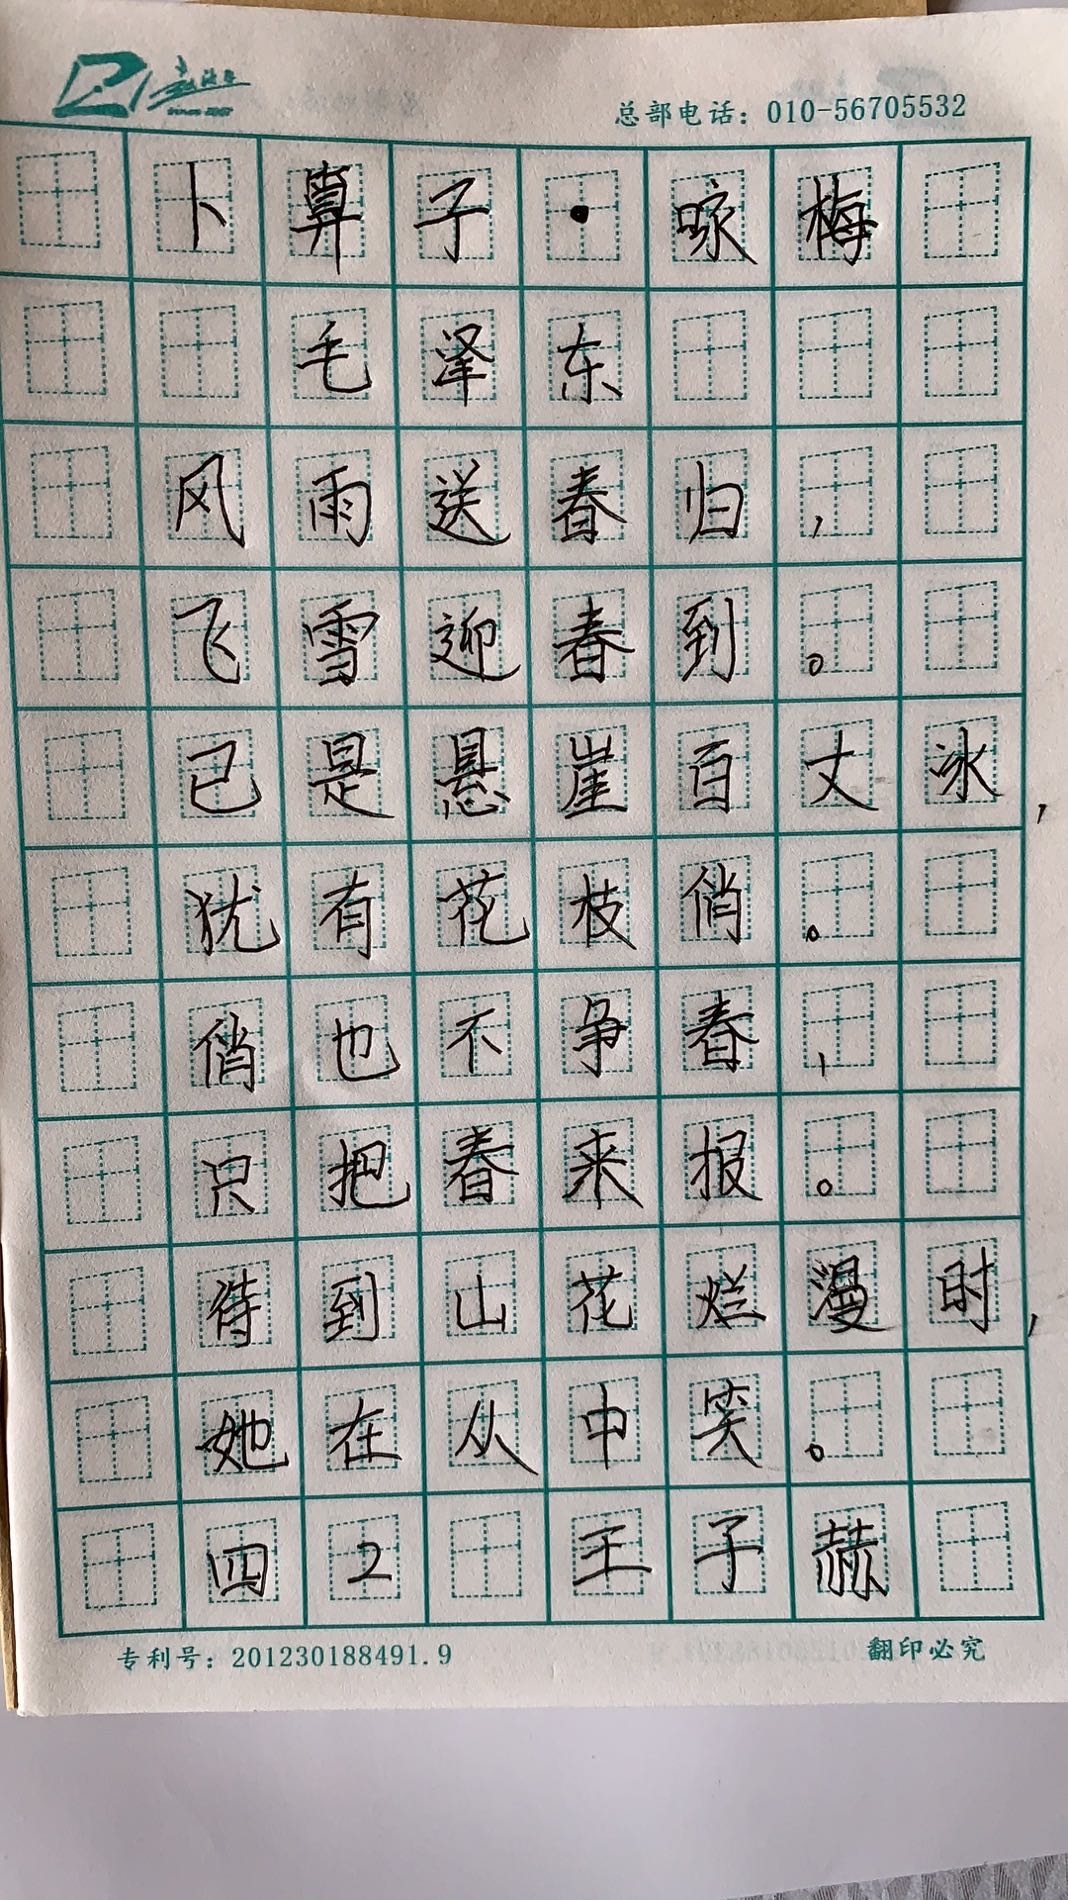 总部电话：010-56705532
卜算子·咏梅
毛泽东
风雨送春归，
飞雪迎春到。
已是悬崖百丈冰，
犹有花枝俏。
俏也不争春，
只把春来报。
待到山花烂漫时，
她在从中笑。
四2 王子赫
专利号：201230188491.9
翻印必究